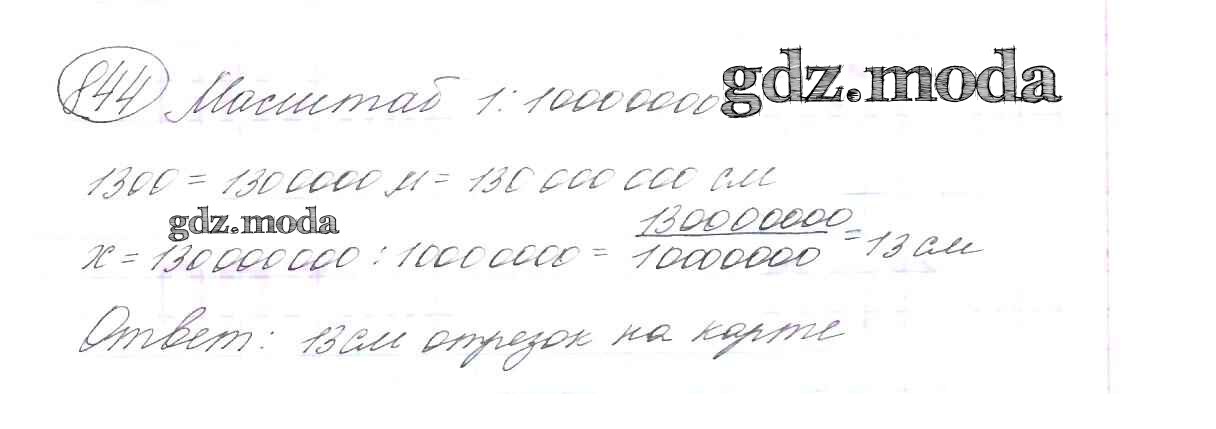 844 Масштаб 1:10000000 gdz.moda
1300 = 1300000 м = 130 000 000 см
gdz.moda
x = 130000000 : 10000000 = 130000000/10000000 = 13 см
Ответ: 13 см отрезок на карте